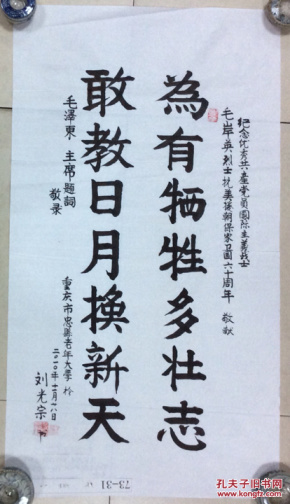 纪念优秀共產党員国际主義战士
毛岸英烈士抗美援朝保家卫國六十周年 敬献
為有牺牲多壮志
敢教日月换新天
毛澤東 主席題詞
敬录
重庆市忠县老年大學
二〇一〇年十一月八日
刘光宗
73-31
孔夫子旧书网